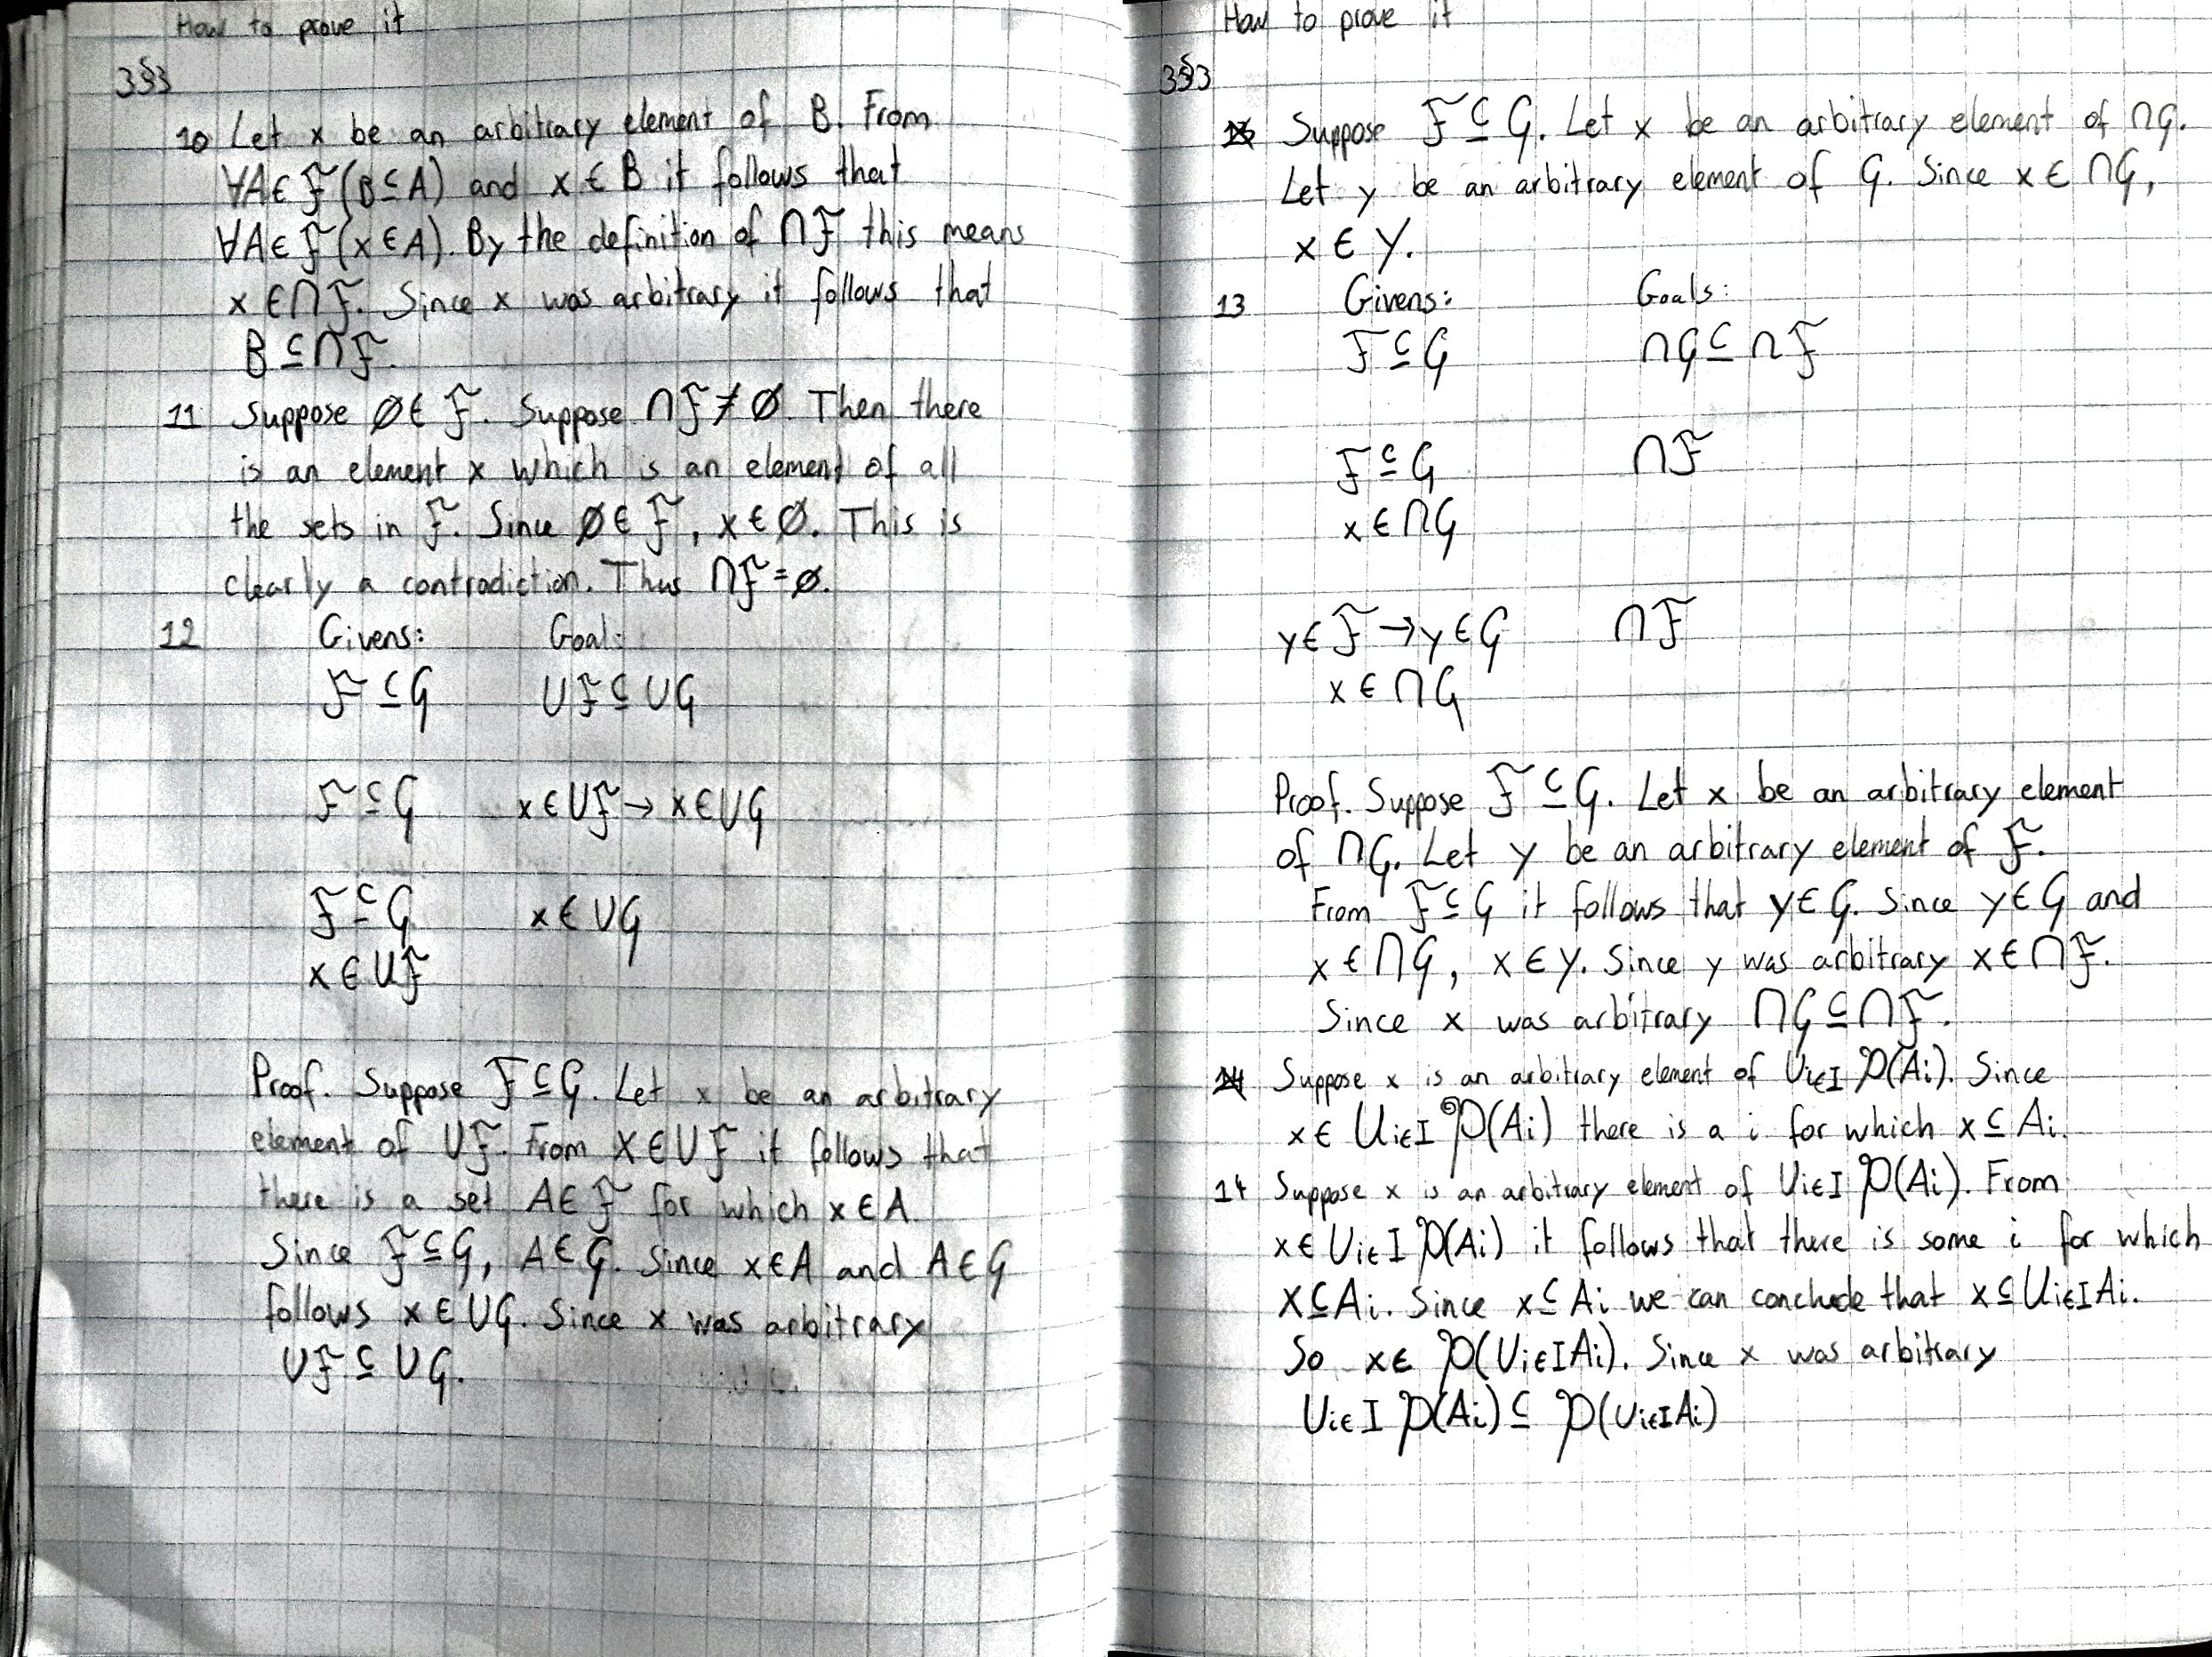 How to prove it
3§3
10 Let x be an arbitrary element of B. From
∀A∈ℱ(B⊆A) and x∈B it follows that
∀A∈ℱ(x∈A). By the definition of ∩ℱ this means
x∈∩ℱ. Since x was arbitrary it follows that
B⊆∩ℱ.
11 Suppose ∅∈ℱ. Suppose ∩ℱ≠∅. Then there
is an element x which is an element of all
the sets in ℱ. Since ∅∈ℱ, x∈∅. This is
clearly a contradiction. Thus ∩ℱ=∅.
12 Givens: Goal:
ℱ⊆G ∪ℱ⊆∪G
ℱ⊆G x∈∪ℱ→x∈∪G
ℱ⊆G x∈∪G
x∈∪ℱ
Proof. Suppose ℱ⊆G. Let x be an arbitrary
element of ∪ℱ. From x∈∪ℱ it follows that
there is a set A∈ℱ for which x∈A.
Since ℱ⊆G, A∈G. Since x∈A and A∈G
follows x∈∪G. Since x was arbitrary
∪ℱ⊆∪G.
How to prove it
3§3
Suppose ℱ⊆G. Let x be an arbitrary element of ∩G.
Let y be an arbitrary element of G. Since x∈∩G,
x∈y.
13 Givens: Goals:
ℱ⊆G ∩G⊆∩ℱ
ℱ⊆G ∩ℱ
x∈∩G
y∈ℱ→y∈G ∩ℱ
x∈∩G
Proof. Suppose ℱ⊆G. Let x be an arbitrary element
of ∩G. Let y be an arbitrary element of ℱ.
From ℱ⊆G it follows that y∈G. Since y∈G and
x∈∩G, x∈y. Since y was arbitrary x∈∩ℱ.
Since x was arbitrary ∩G⊆∩ℱ.
14 Suppose x is an arbitrary element of ∪i∈I 𝒫(Ai). Since
x∈∪i∈I 𝒫(Ai) there is a i for which x⊆Ai.
14 Suppose x is an arbitrary element of ∪i∈I 𝒫(Ai). From
x∈∪i∈I 𝒫(Ai) it follows that there is some i for which
x⊆Ai. Since x⊆Ai we can conclude that x⊆∪i∈IAi.
So x∈ 𝒫(∪i∈IAi). Since x was arbitrary
∪i∈I 𝒫(Ai)⊆ 𝒫(∪i∈IAi)